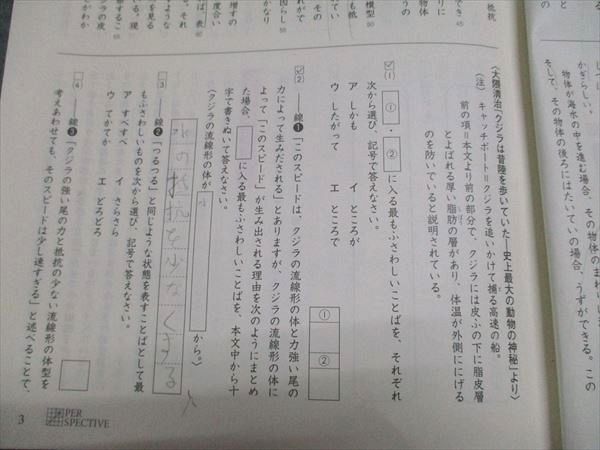 抵抗
物体
その
〈大隅清治「クジラは昔陸を歩いていた―史上最大の動物の神秘」より〉
(注) キャッチボート=クジラを追いかけて捕る高速の船。
前の項=本文より前の部分で、クジラには皮ふの下に脂皮層
とよばれる厚い脂肪の層があり、体温が外側ににげる
のを防いでいると説明されている。
1 ①・②に入る最もふさわしいことばを、それぞれ
次から選び、記号で答えなさい。
ア しかも イ ところが
ウ したがって エ ところで
① ②
2 ―線❶「このスピードは、クジラの流線形の体と力強い尾の
力によって生みだされる」とありますが、クジラの流線形の体に
よって「このスピード」が生み出される理由を次のようにまとめ
た場合、 に入る最もふさわしいことばを、本文中から十
字で書きぬいて答えなさい。
(クジラの流線形の体が から。)
水の抵抗を少なくできる
3 ―線❷「つるつる」と同じような状態を表すことばとして最
もふさわしいものを次から選び、記号で答えなさい。
ア すべすべ イ さらさら
ウ てかてか エ どろどろ
4 ―線❸「クジラの強い尾の力と抵抗の少ない流線形の体型を
考えあわせても、そのスピードは少し速すぎる」と述べることで、
かぎらしい。
物体が海水の中を進む場合、その物体のまわりに
そして、その物体の後ろにはたいていの場合、うずができる。この
3
PER
SPECTIVE